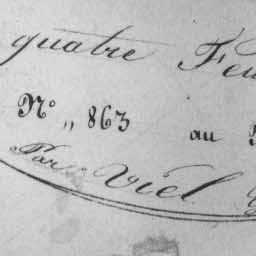 quatre Feu
N° „ 863 au
Par Viel